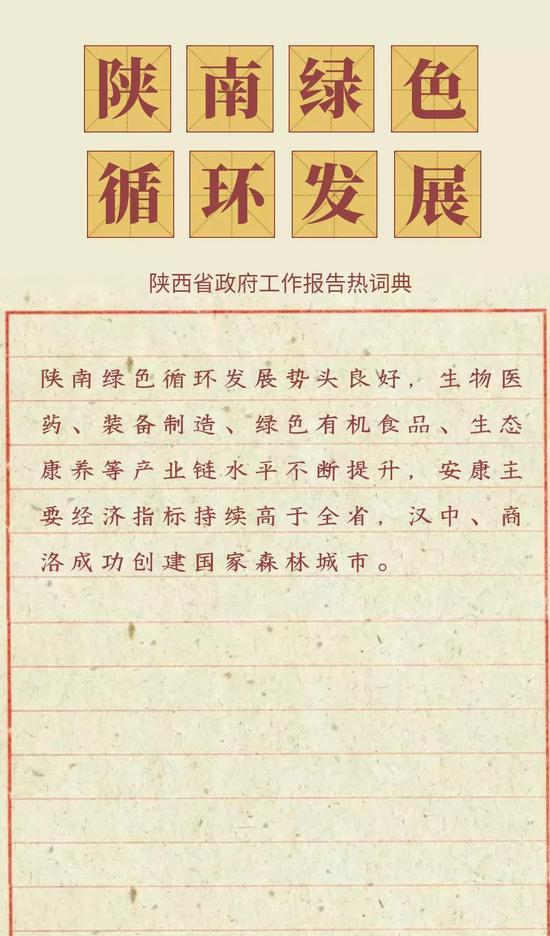 陕南绿色
循环发展
陕西省政府工作报告热词典
陕南绿色循环发展势头良好，生物医
药、装备制造、绿色有机食品、生态
康养等产业链水平不断提升，安康主
要经济指标持续高于全省，汉中、商
洛成功创建国家森林城市。